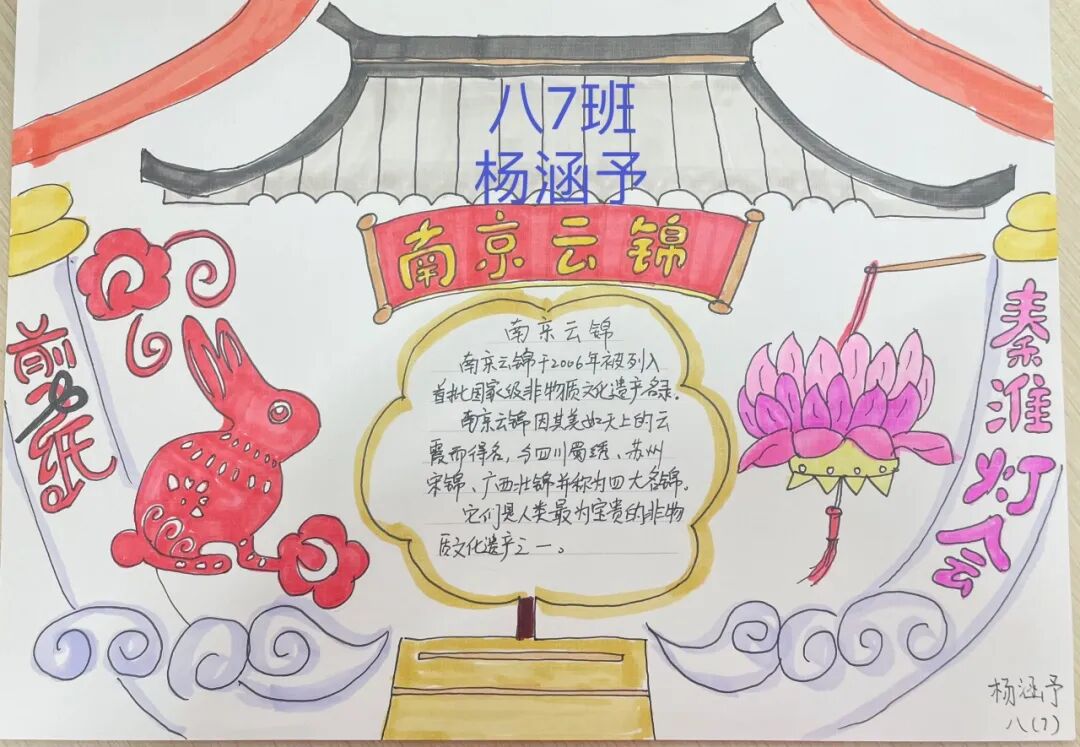 八7班
杨涵予
南京云锦
剪纸
秦淮灯会
南京云锦
南京云锦于2006年被列入
首批国家级非物质文化遗产名录。
南京云锦因其美如天上的云
霞而得名，与四川蜀绣、苏州
宋锦、广西壮锦并称为四大名锦。
它们是人类最为宝贵的非物
质文化遗产之一。
杨涵予
八(7)